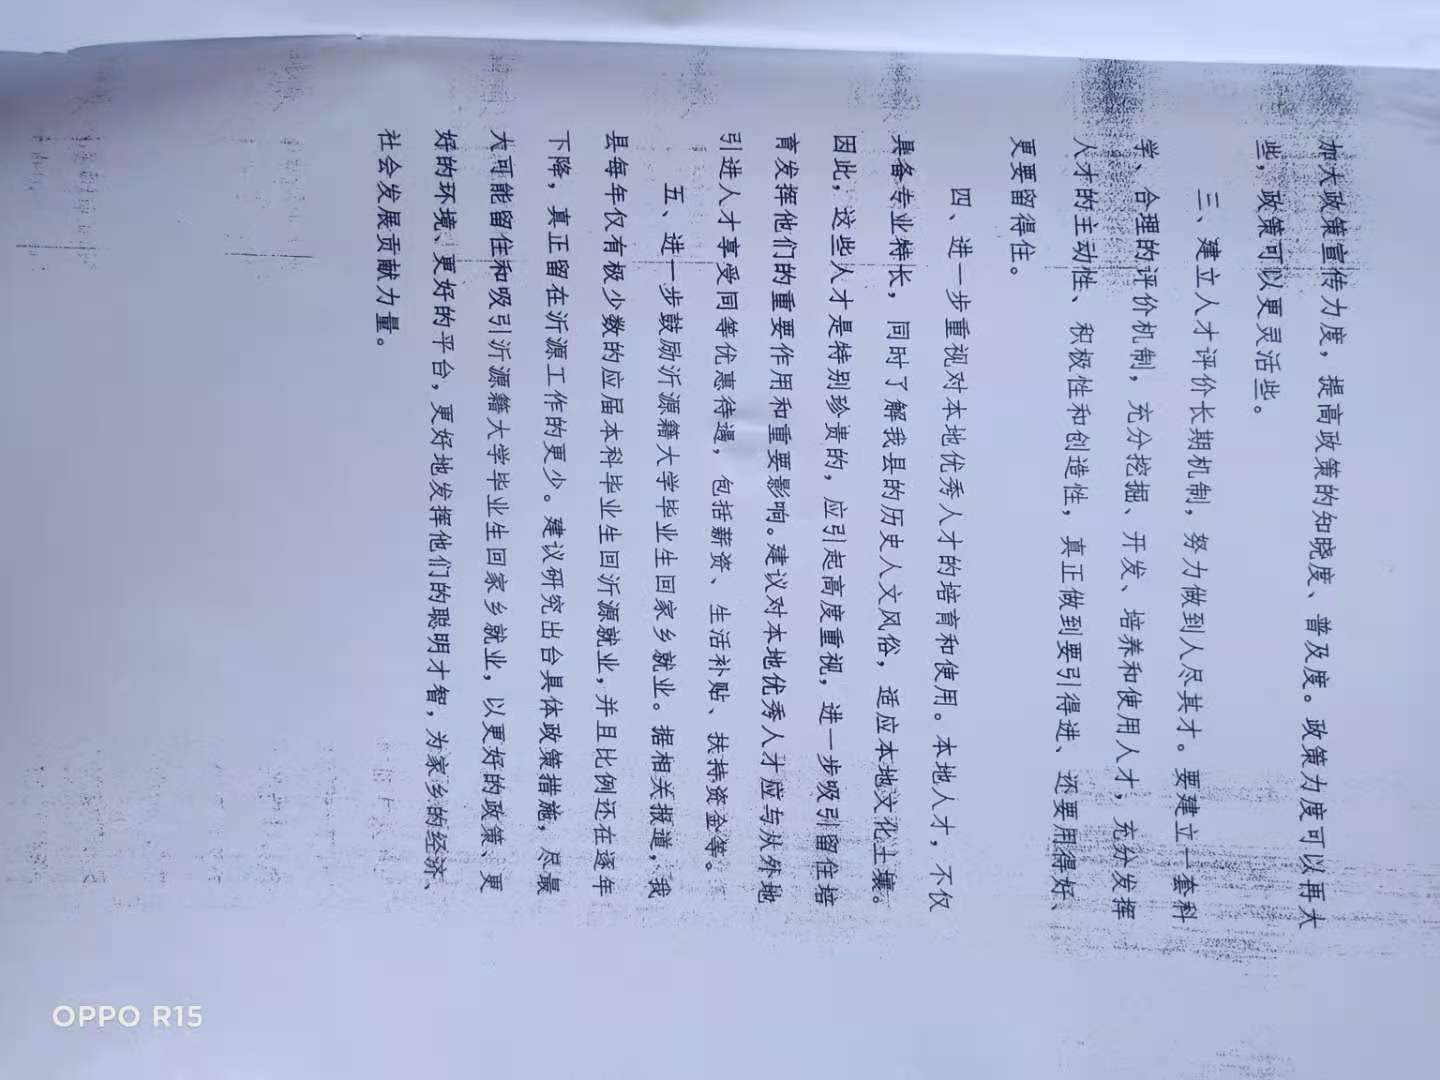 加大政策宣传力度，提高政策的知晓度、普及度。政策力度可以再大
些，政策可以更灵活些。
三、建立人才评价长期机制，努力做到人尽其才。要建立一套科
学、合理的评价机制，充分挖掘、开发、培养和使用人才，充分发挥
人才的主动性、积极性和创造性，真正做到要引得进、还要用得好、
更要留得住。
四、进一步重视对本地优秀人才的培育和使用。本地人才，不仅
具备专业特长，同时了解我县的历史人文风俗，适应本地文化土壤。
因此，这些人才是特别珍贵的，应引起高度重视，进一步吸引留住培
育发挥他们的重要作用和重要影响。建议对本地优秀人才应与从外地
引进人才享受同等优惠待遇，包括薪资、生活补贴、扶持资金等。
五、进一步鼓励沂源籍大学毕业生回家乡就业。据相关报道，我
县每年仅有极少数的应届本科毕业生回沂源就业，并且比例还在逐年
下降，真正留在沂源工作的更少。建议研究出台具体政策措施，尽最
大可能留住和吸引沂源籍大学毕业生回家乡就业，以更好的政策、更
好的环境、更好的平台，更好地发挥他们的聪明才智，为家乡的经济、
社会发展贡献力量。
OPPO R15